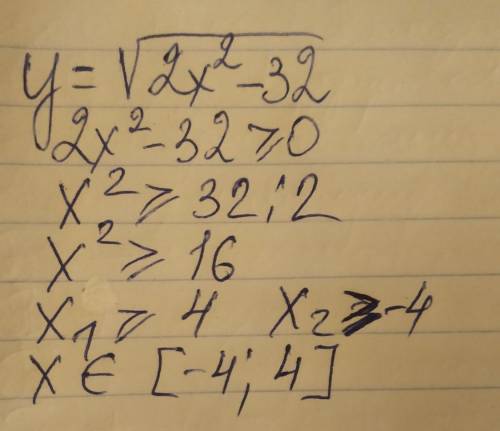 y = √(2x² - 32)
2x² - 32 ≥ 0
x² ≥ 32 : 2
x² ≥ 16
x₁ ≥ 4 x₂ ≥ -4
x ∈ [-4; 4]